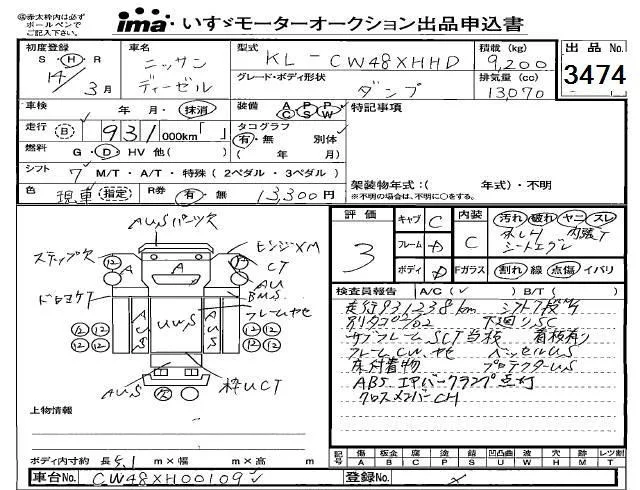 ㊟赤太枠内は必ず
ボールペンで
ご記入下さい。
ima いすゞモーターオークション出品申込書
初度登録
S・H・R
14 3月
車名
ニッサン
ディーゼル
型式
KL-CW48XHHD
グレード・ボディ形状
ダンプ
積載 (kg)
9,200
排気量 (cc)
13,070
出品No.
3474
車検 年・月・抹消
装備 A C P S P W
特記事項
走行 B 931 000km
タコグラフ
有・無 別体
( 年 月)
燃料 G・D・HV 他( )
シフト 7 M/T・A/T・特殊(2ペダル・3ペダル)
色 現車 指定 R券 有・無 13,300円
架装物年式:( 年式)・不明
※不明の場合は、不明に○をする。
AUSバンパー欠
ステップ欠
エンジンXM
CT
AU
BMS
ドロヨケT
フレームサビ
A
AUS
UWS
AUS
12 12 12 12 12 12
AUS
枠UCT
欠
上物情報
ボディ内寸約 長5.1 m×幅 m×高 m
評価
3
キャブ C
フレーム D
ボディ D
内装 C
汚れ 破れ ヤニ スレ
シートエグレ
Fガラス 割れ 線 点傷・イバリ
検査員報告 A/C( ✓ ) B/T( )
走行931238km シフト7段
下廻りSC
サブフレームSCT 看板有り
フレームCW サビ ベッセルUS
床付着物 プロテクターUS
ABS エアバークランプ点灯
クロスメンバーCH
記号 傷 A 板金 B 腐 C 塗 P 錆 S 凹凸曲 U 波 W 穴 H 跡 M レツ割 T
車台No. CW48XH00109
登録No. ×